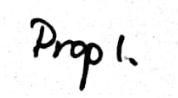 Prop 1.